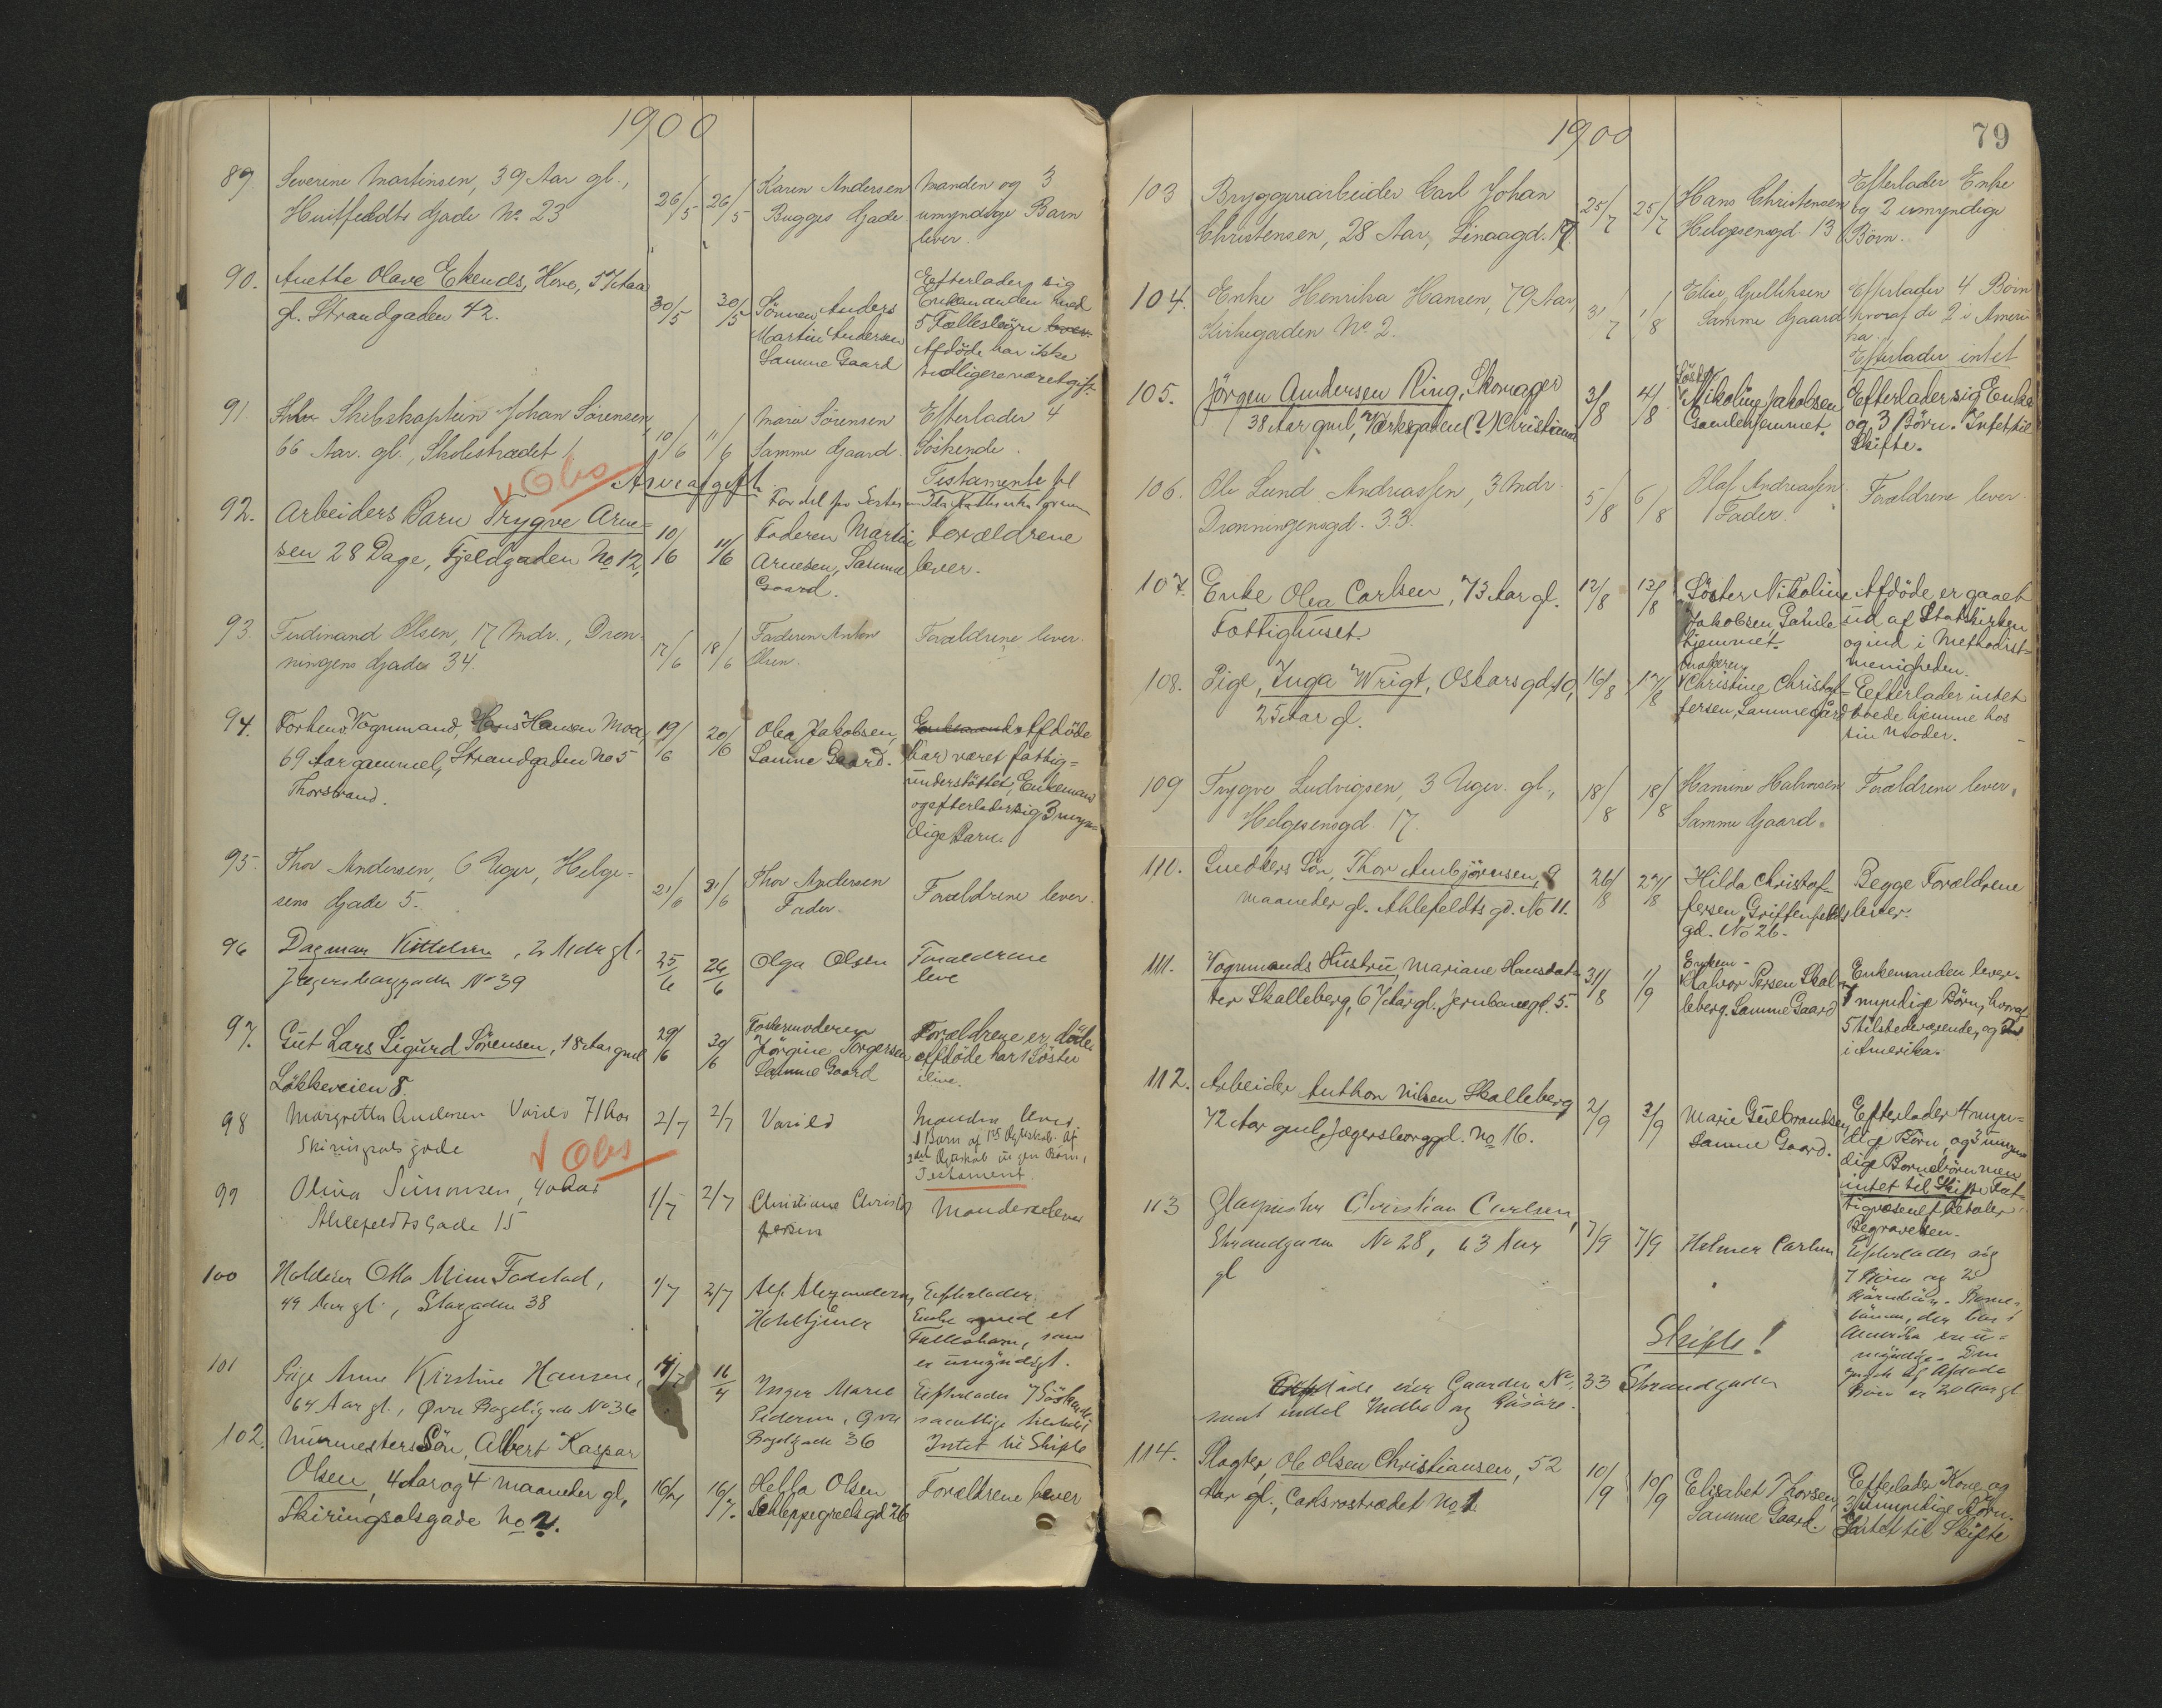 1900
89. Severine Martinsen, 39 Aar gl.,
Huitfeldts Gade No 23
26/5 26/5
Karen Andersen
Bugges Gade
Manden og 3
umyndige Barn
lever.
90. Anette Olave Ekends, Kone, 57 Aar
gl. Strandgaden 42.
30/5 30/5
Sönnen Anders
Martin Andersen
Samme Gaard
Efterlader sig
Enkemanden med
5 Fællesbörn
Afdöde har ikke
tidligere været gift.
91. Skibskaptein Johan Sörensen,
66 Aar. gl., Skolestrædet 1
10/6 11/6
Marie Sörensen
Samme Gaard.
Efterlader 4
Söskende.
Obs
Arveafgift.
Testamente til
92. Arbeiders Barn Trygve Arne-
sen 28 Dage, Fjeldgaden No 12,
10/6 11/6
Faderen Martin
Arnesen, Samme
Gaard.
Forældrene
lever.
93. Ferdinand Olsen, 17 Mdr., Dron-
ningens Gade 34.
17/6 18/6
Faderen Anton
Olsen.
Forældrene lever.
94. Forhenv. Vognmand, Hans Hansen Moa,
69 Aar gammel, Strandgaden No 5
Thorstrand.
19/6 20/6
Olea Jakobsen,
Samme Gaard.
Afdöde
har været fattig-
understöttet, Enkemand
og efterlader sig 3 myn-
dige Barn.
95. Thor Andersen, 6 Uger, Helge-
sens Gade 5.
21/6 21/6
Thor Andersen
Fader.
Forældrene lever.
96 Dagmar Kittelsen, 2 Mdr gl.
Jægersborggaden No 39
25/6 26/6
Olga Olsen
Forældrene
leve
97. Gut Lars Sigurd Sörensen, 18 Aar gml
Lökkeveien 8.
29/6 30/6
Fostermoderen
Jörgine Torgersen
Samme Gaard
Forældrene er döde
afdöde har 1 Söster
ilive.
98 Margrethe Andersen Varild 71 Aar
Skiringsals gade
2/7 2/7
Varild
Manden lever
Testament.
Obs
99 Olina Simonsen, 40 Aar
Ahlefeldts Gade 15
1/7 2/7
Christiane Christof
fersen
Manden lever
100 Otto Fadstad,
49 Aar gl., Storgaden 38
1/7 2/7
Alf. Alexandersen
Efterlader
Enke med et
Fællesbarn, som
er umyndigt.
101 Pige Anne Kirstine Hansen,
64 Aar gl., Øvre Bøgeligade No 36
Inger Marie
Pedersen, Øvre
Bøgeligade 36
Efterlader 7 Söskende
samtlige
Intet til Skifte
102. Murmesters Sön, Albert Kaspar
Olsen, 4 Aar og 4 Maaneder gl,
Skiringsalsgade No 2.
16/7 16/7.
Hella Olsen
Schleppegrels gd 26
Forældrene lever
1900
79
103 Bryggeriarbeider Carl Johan
Christensen, 28 Aar, Linaagd. 17.
25/7 25/7
Hans Christensen
Helgesensgd. 13
Efterlader Enke
og 2 umyndige
Börn.
104. Enke Henrika Hansen, 79 Aar,
Kirkegaden No 2.
31/7 1/8
Elise Gulliksen
Samme Gaard
Efterlader 4 Börn
hvoraf de 2 i Ameri
ka.
Efterlader intet
105. Jörgen Andersen Ring, Skomager
38 Aar gml, Værksgaden (?) Christiania
3/8 4/8
Söster
Nikoline Jakobsen
Gamlehjemmet.
Efterlader sig Enke
og 3 Börn. Intet til
Skifte.
106. Ole Lund Andreassen, 3 Mdr.
Dronningensgd. 33.
5/8 6/8
Olaf Andreassen
Fader.
Forældrene lever.
107. Enke Olea Carlsen, 73 Aar gl.
Fattighuset.
12/8 13/8
Söster Nikoline
Jakobsen Gamle
hjemmet.
Afdöde er gaaet
ud af Statskirken
og ind i Methodist-
menigheden.
108. Pige, Inga Wrigt, Oskarsgd. 10,
25 Aar gl.
16/8 17/8
Christine Christof-
fersen, Samme gård
Efterlader intet
boede hjemme hos
sin Moder.
109 Trygve Ludvigsen, 3 Uger. gl.,
Helgesensgd. 17.
18/8 18/8
Hanine Halvorsen
Samme Gaard.
Forældrene lever.
110. Snedkers Sön, Thor Arnbjörnsen, 9
maaneder gl. Ahlefeldts gd. No 11.
26/8 27/8
Hilda Christof-
fersen, Griffenfeldts
gd. No 26.
Begge Forældrene
lever.
111. Vognmands Hustru Mariane Hansdat-
ter Skalleberg, 67 Aar gl. Jernbanegd. 5.
31/8 1/9
Enkem-
Halvor Persen Skal-
leberg. Samme Gaard
Enkemanden lever.
7 myndige Börn, hvoraf
5 tilstedeværende, og 2
i Amerika.
112. Arbeider Anthon Nilsen Skalleberg
72 Aar gml. Jægersborggd. No 16.
2/9 3/9
Marie Gulbrandsen,
Samme Gaard.
Efterlader 4 myn-
dige Börn, og 3 umyn
dige Barnebörn men
intet til Skifte Fat-
tigvæsenet betaler
Begravelsen.
113 Glasmester Christian Carlsen,
Strandgaden No 28, 63 Aar
gl
7/9 7/9
Helmer Carlsen
Efterlader sig
7 Börn og 2
Barnebörn.
Skifte!
Afdöde eier Gaarden No. 33 Strandgaden
samt endel Indbo og Lösöre.
114. Slagter, Ole Olsen Christiansen, 52
Aar gl., Carlsrostrædet No 1.
10/9 10/9
Elisabet Thorsen
Samme Gaard.
Efterlader Kone og
3 Umyndige Börn.
Intet til Skifte